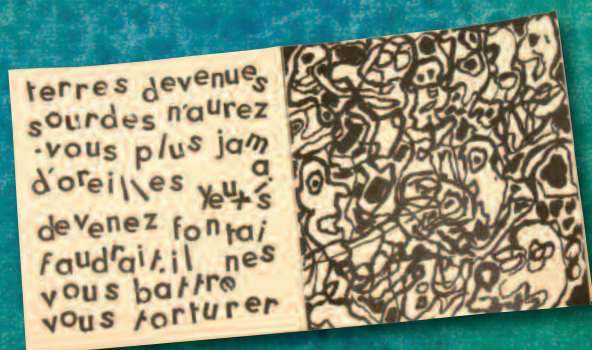 terres devenues
sourdes n'aurez
-vous plus jam
a
d'oreilles yeux's
devenez fontai
faudrait.il nes
vous battre
vous torturer